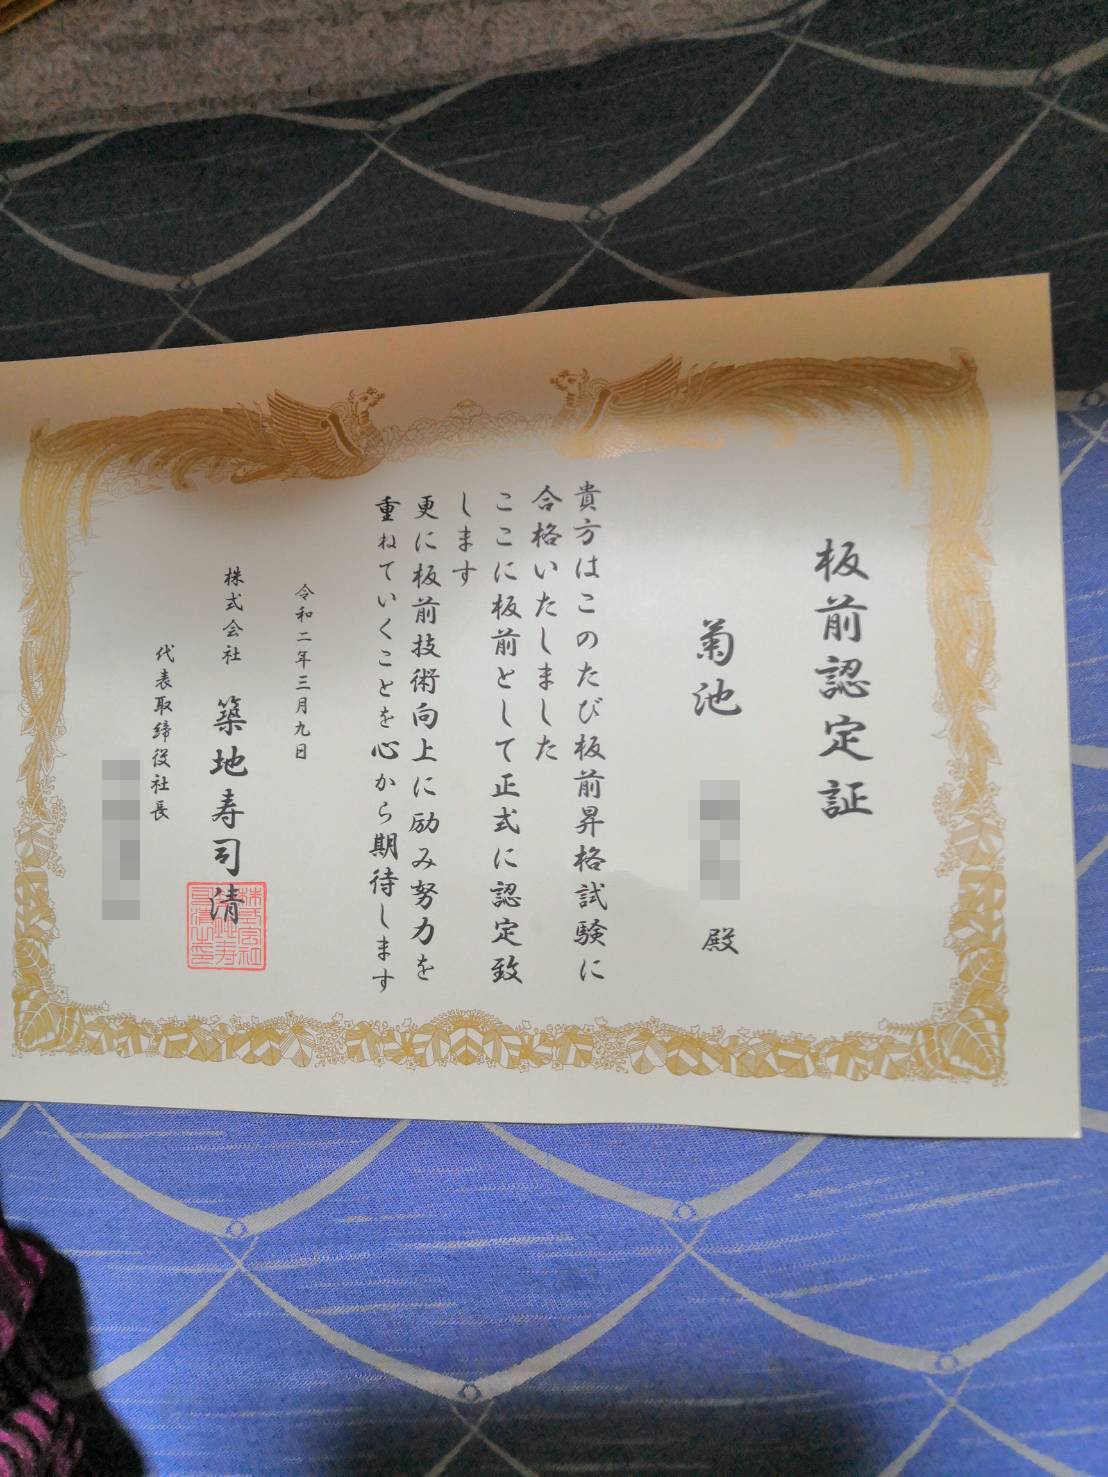 板前認定証
菊池
殿
貴方はこのたび板前昇格試験に
合格いたしました
ここに板前として正式に認定致
します
更に板前技術向上に励み努力を
重ねていくことを心から期待します
令和二年三月九日
株式会社 築地寿司清
代表取締役社長